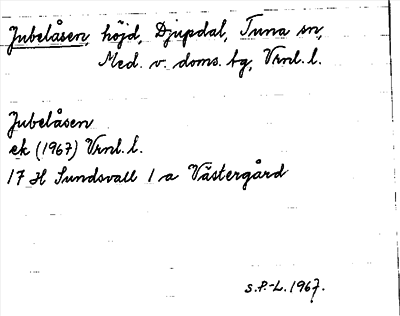 Jubelåsen, höjd, Djupdal, Tuna sn,
Med. v. doms. tg, Vrnl. l.
Jubelåsen
ek (1967) Vrnl. l.
17 H Sundsvall 1 a Västergård
S.P.-L. 1967.